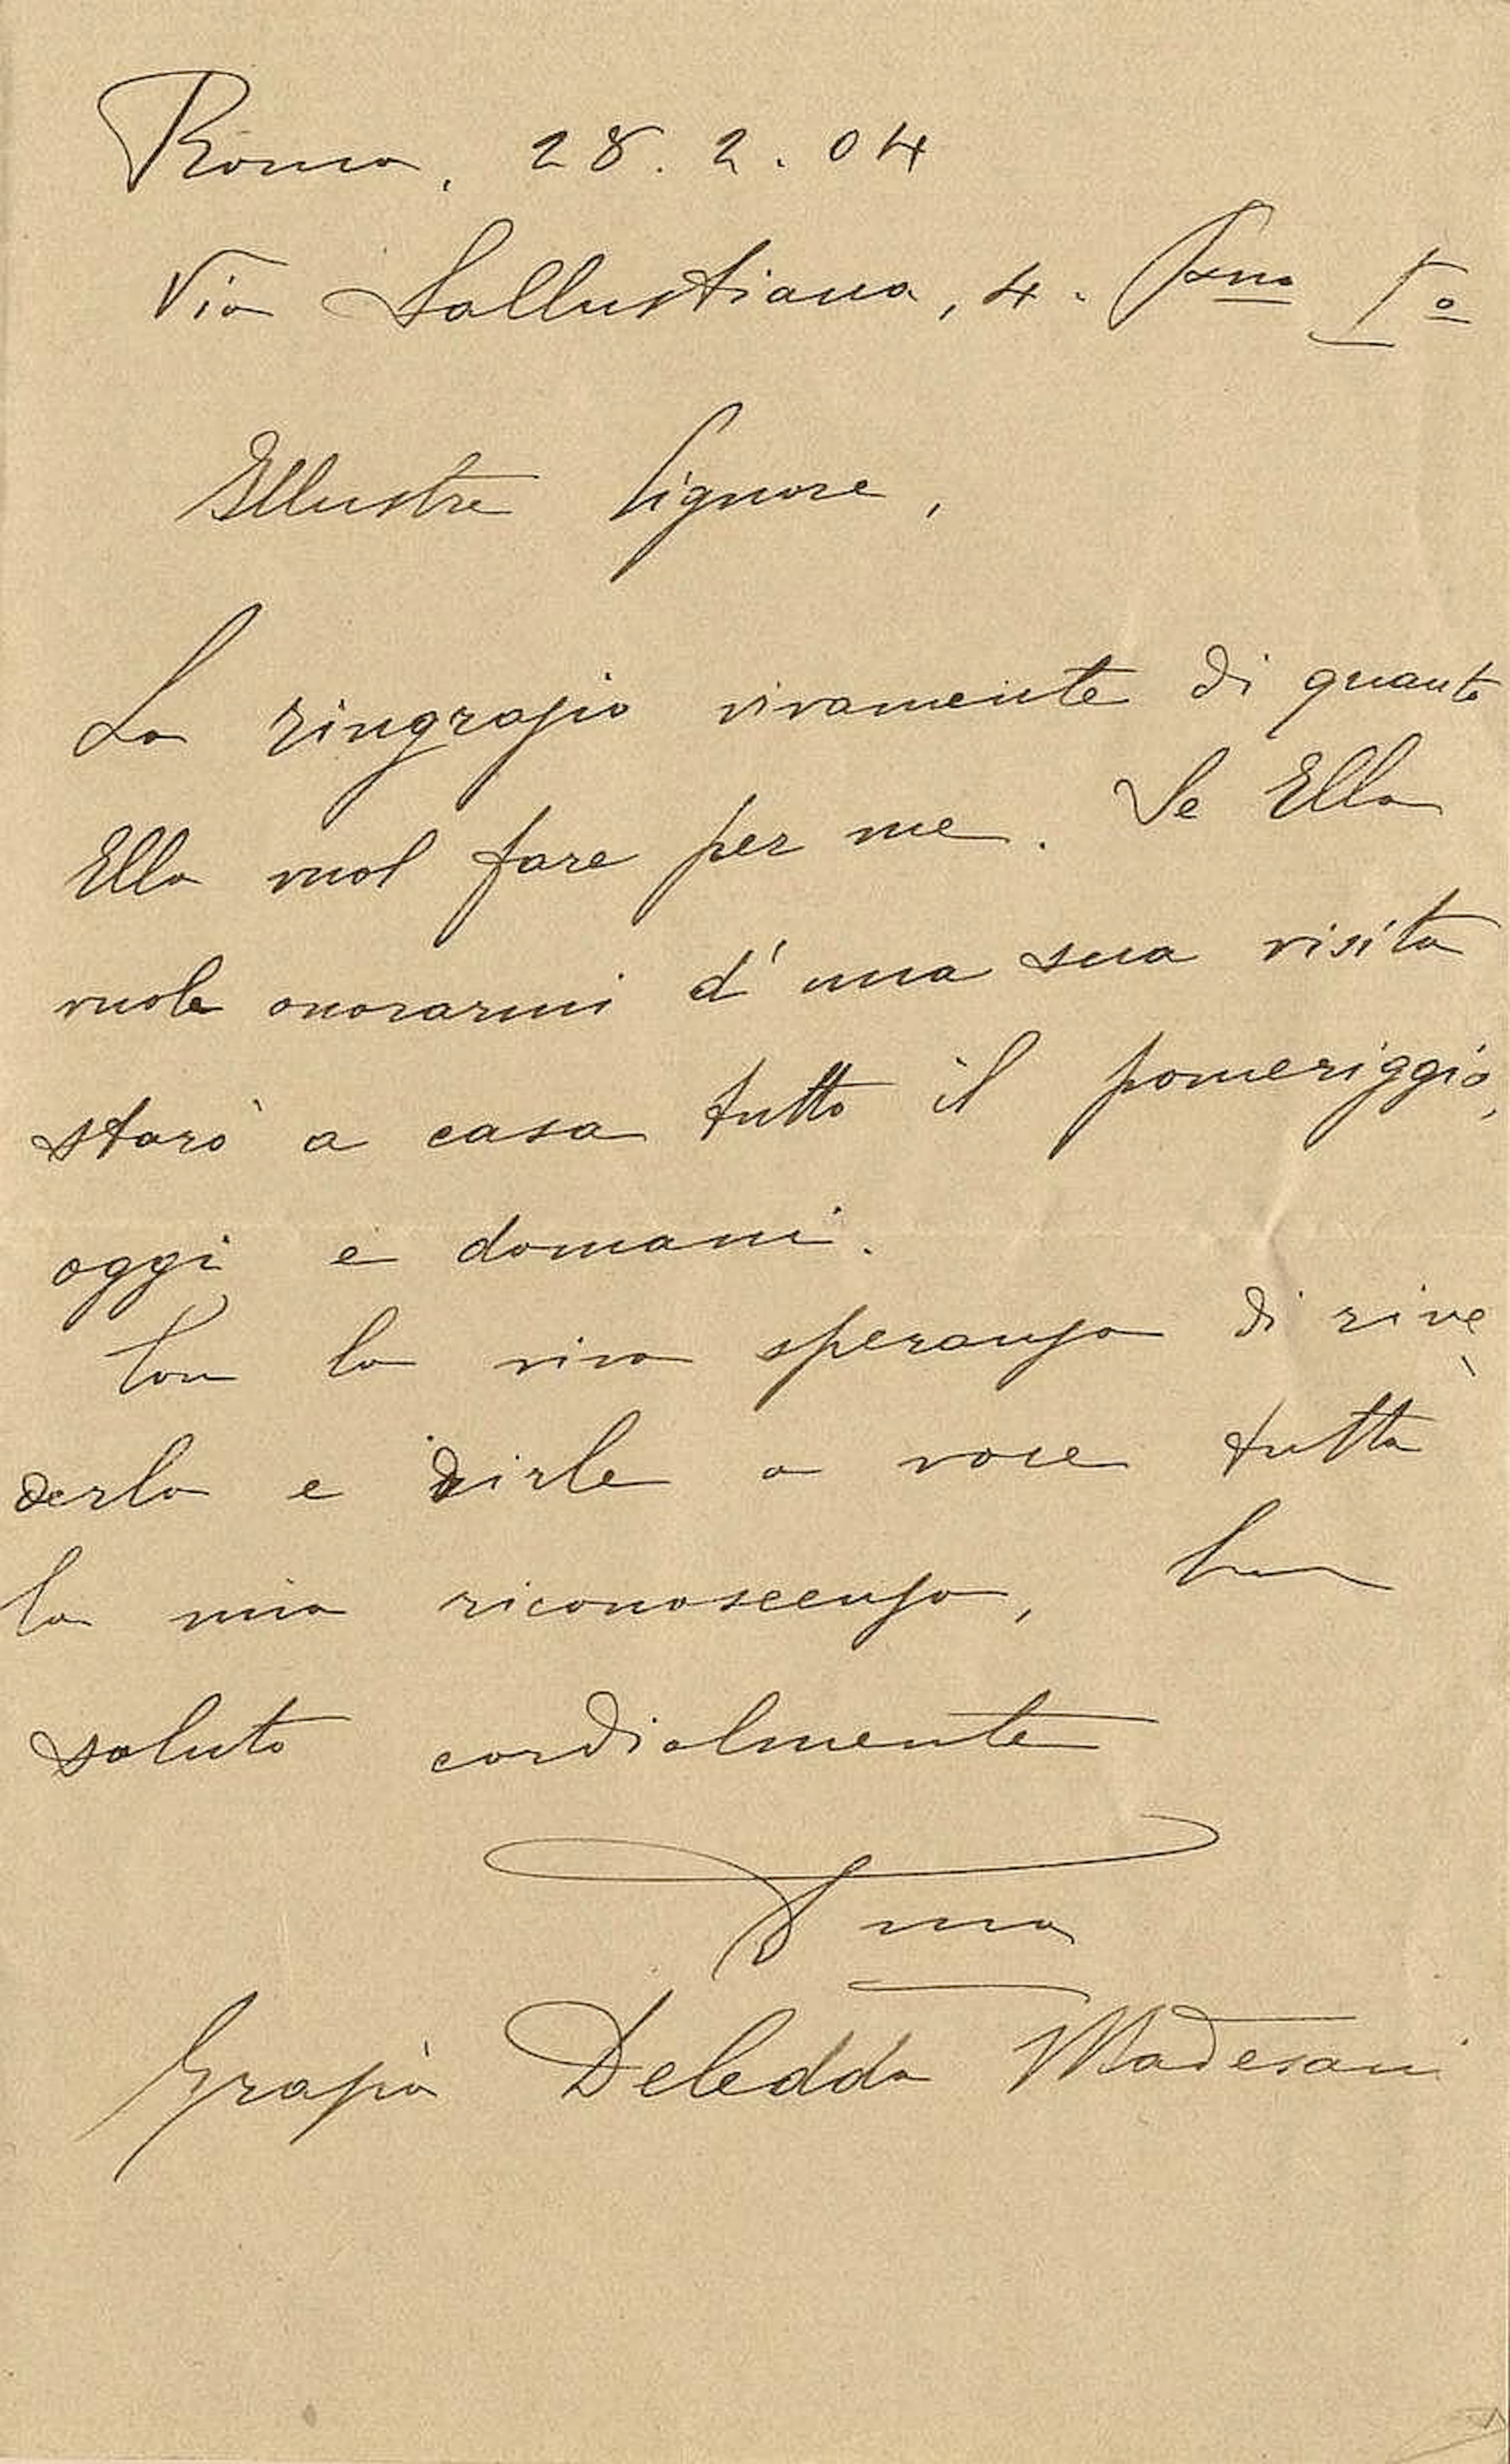 Roma, 28. 2. 04
Via Sallustiana, 4. Pmo Io
Illustre Signore,
La ringrazio vivamente di quanto
Ella vuol fare per me. Se Ella
vuole onorarmi d'una sua visita
starò a casa tutto il pomeriggio,
oggi e domani.
Con la viva speranza di rive
derla e dirle a voce tutta
la mia riconoscenza,
saluto cordialmente
Grazia Deledda Madesani